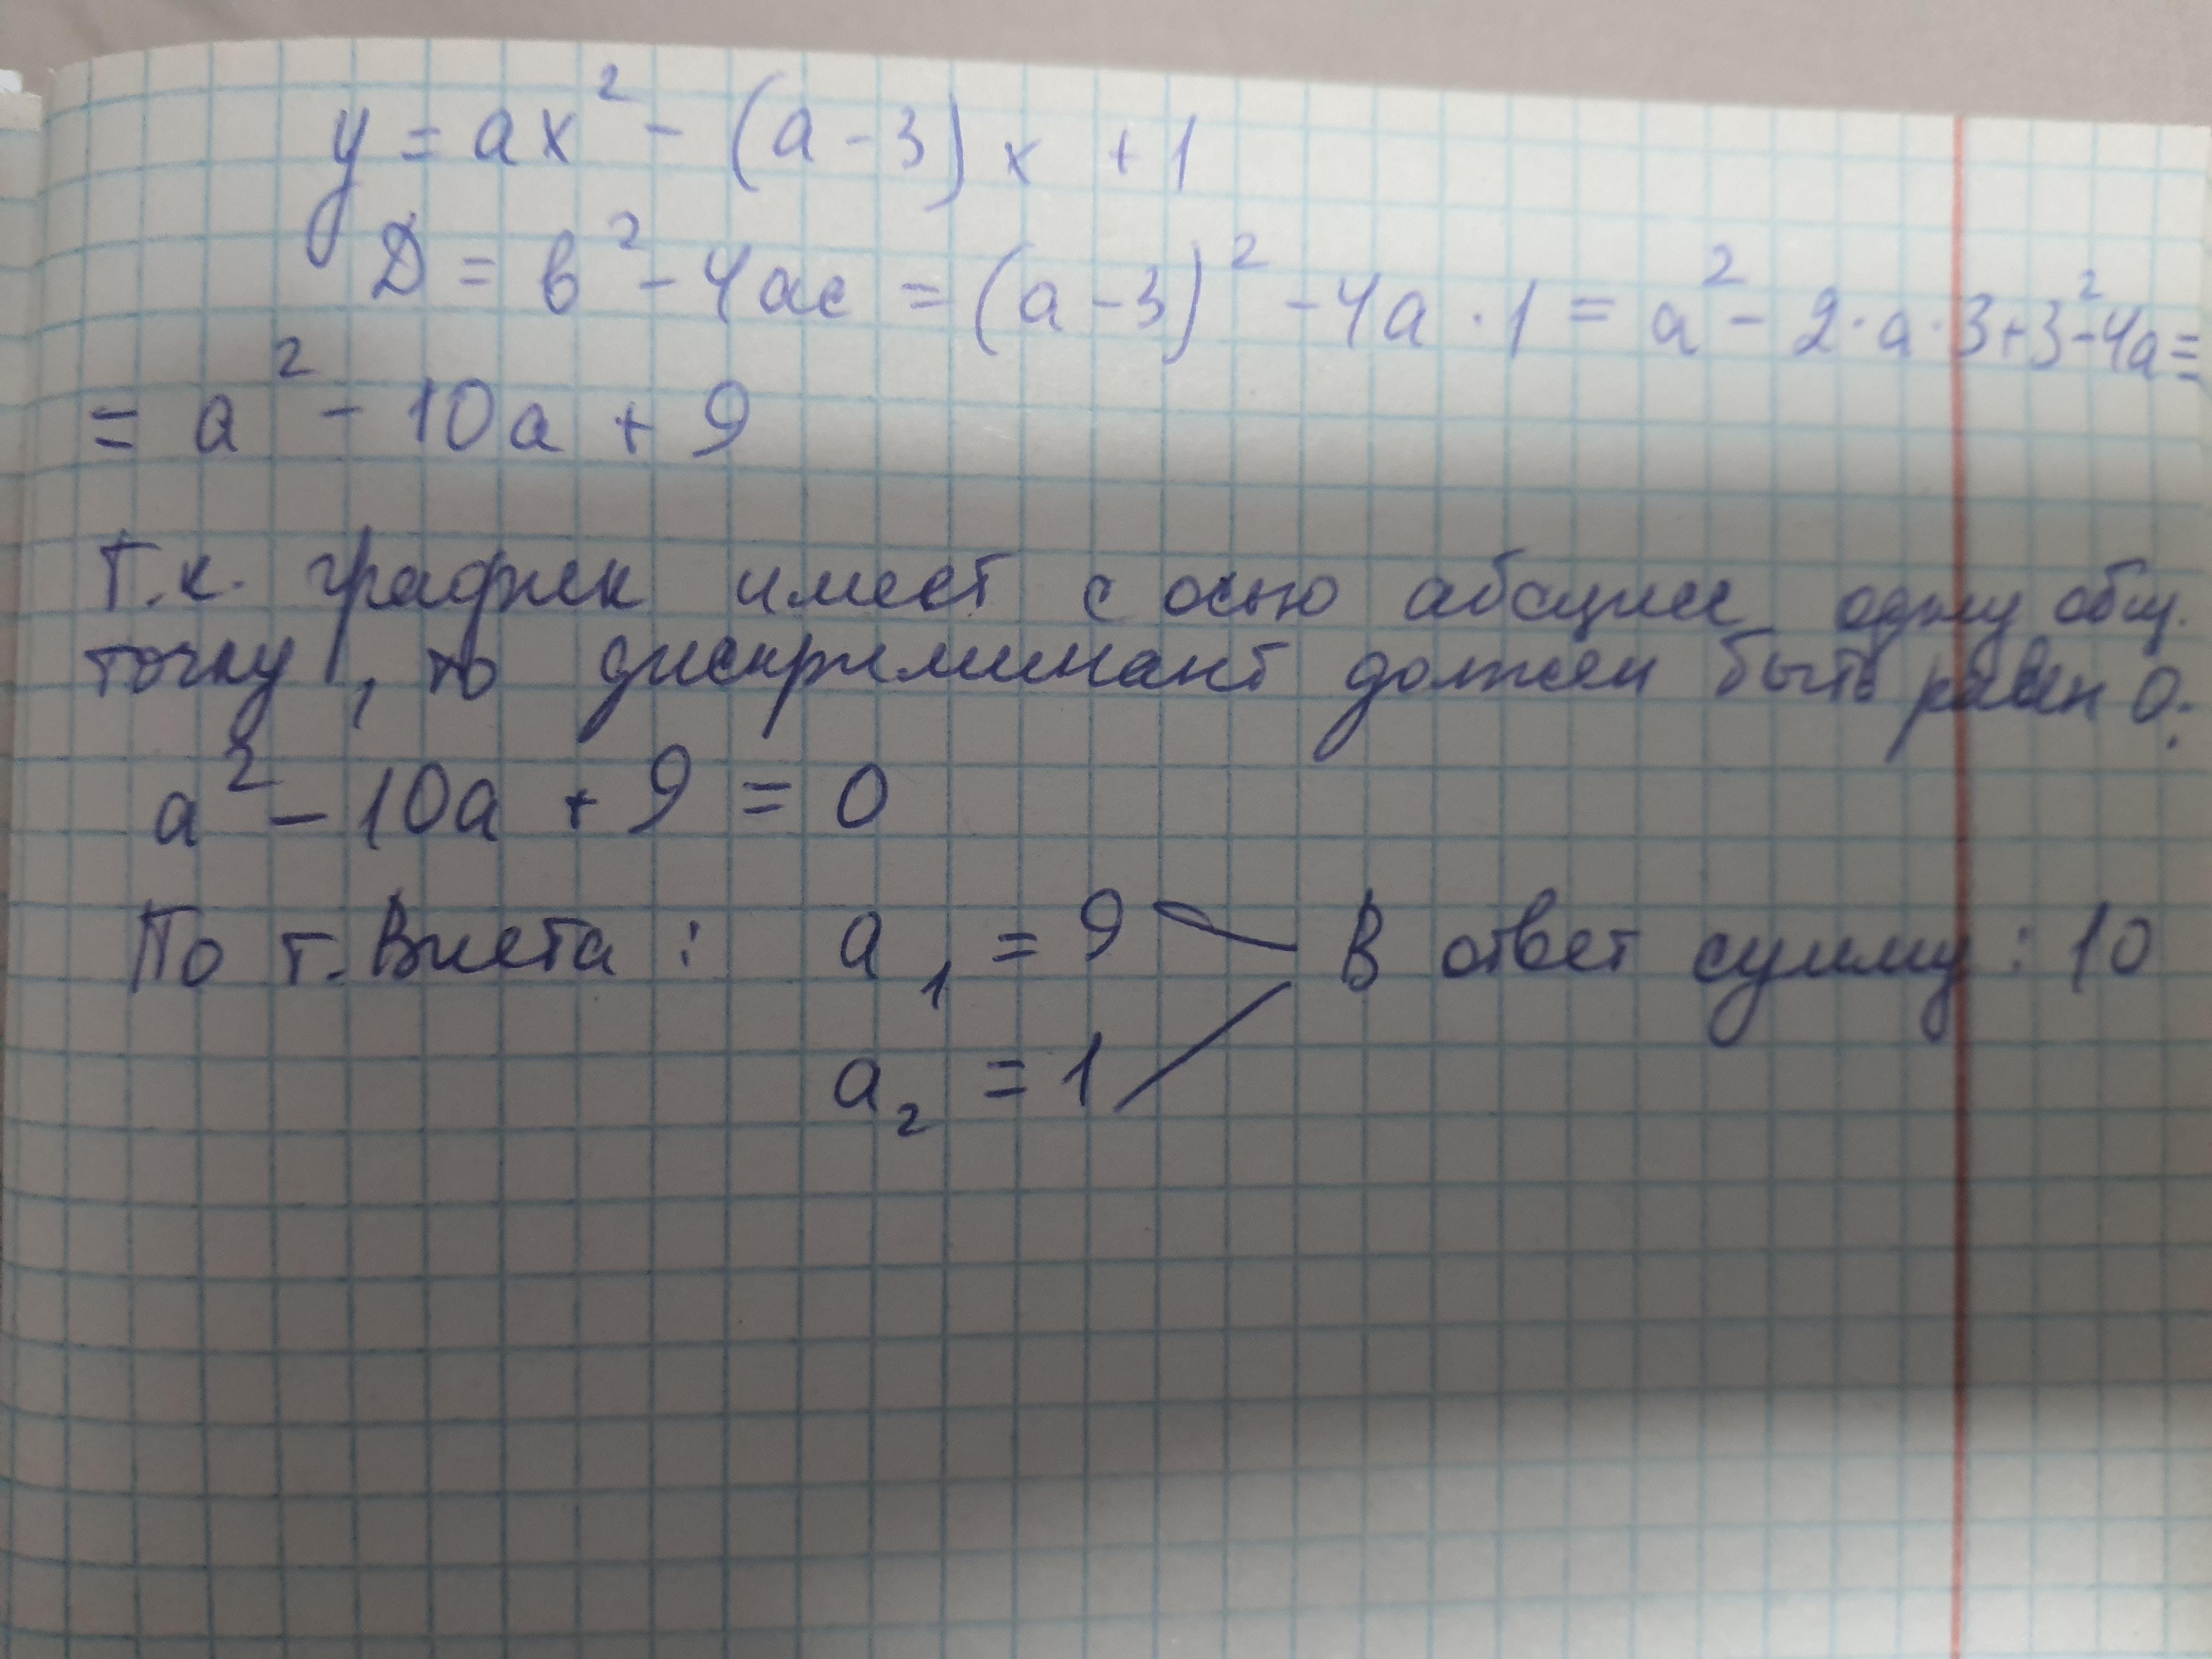 y = ax² - (a - 3) x + 1
D = b² - 4ac = (a - 3)² - 4a · 1 = a² - 2 · a · 3 + 3² - 4a =
= a² - 10a + 9
Т.к. график имеет с осью абсцисс одну общ.
точку, то дискриминант должен быть равен 0.
a² - 10a + 9 = 0
По т. Виета : a₁ = 9 В ответ сумму : 10
a₂ = 1